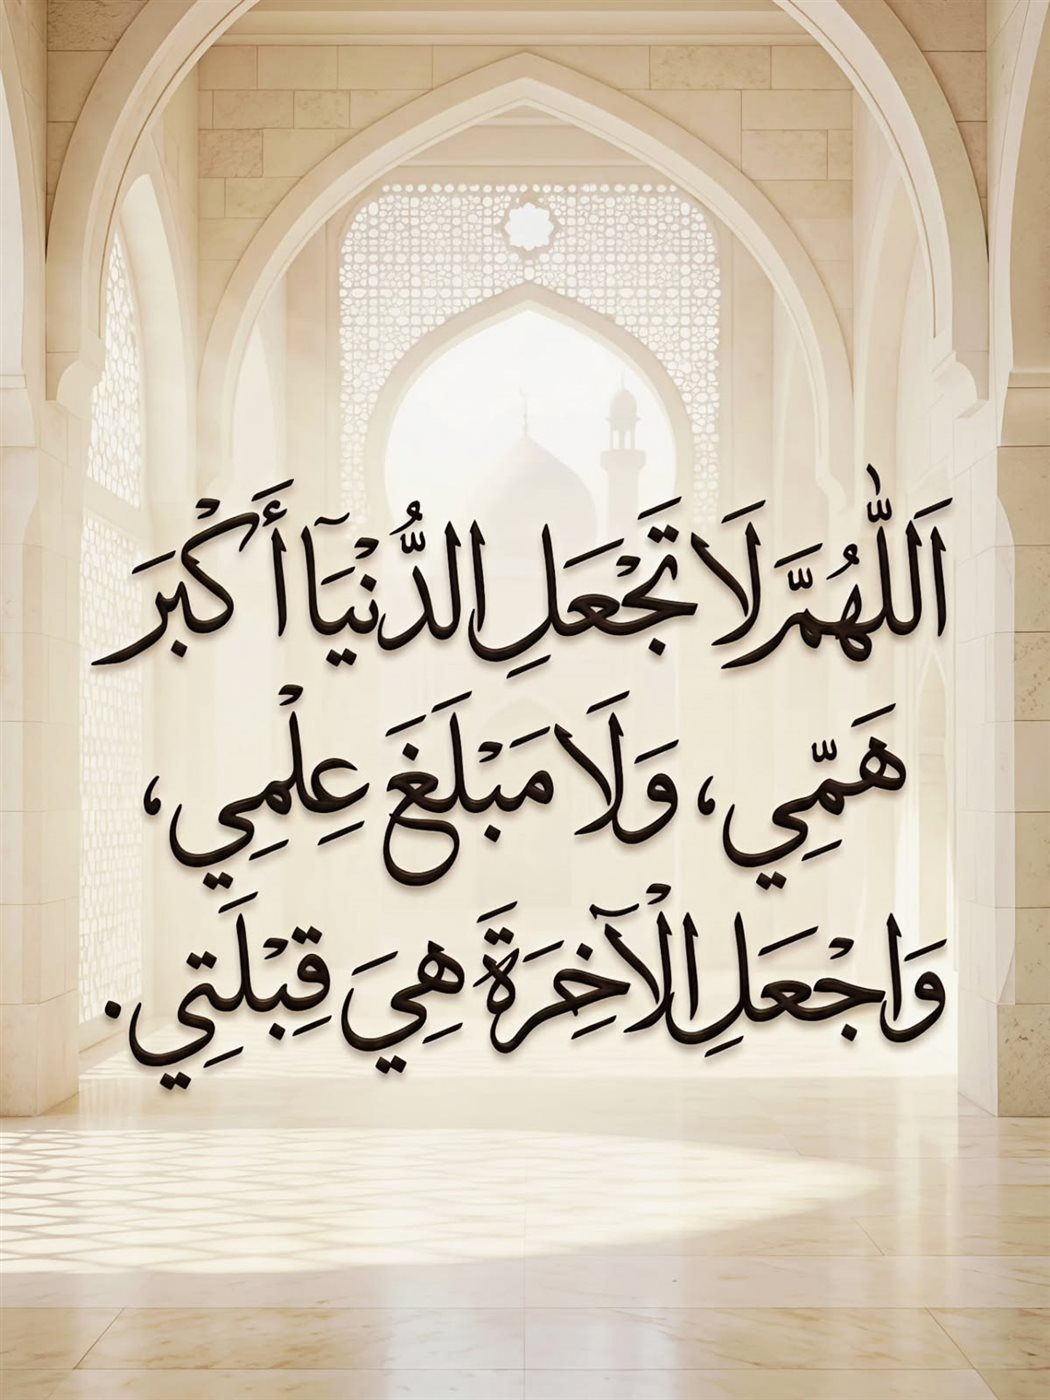 اَللّٰهُمَّ لَا تَجْعَلِ الدُّنْيَآ أَكْبَرَ
هَمِّي، وَلَا مَبْلَغَ عِلْمِي،
وَاجْعَلِ الْآخِرَةَ هِيَ قِبْلَتِي.